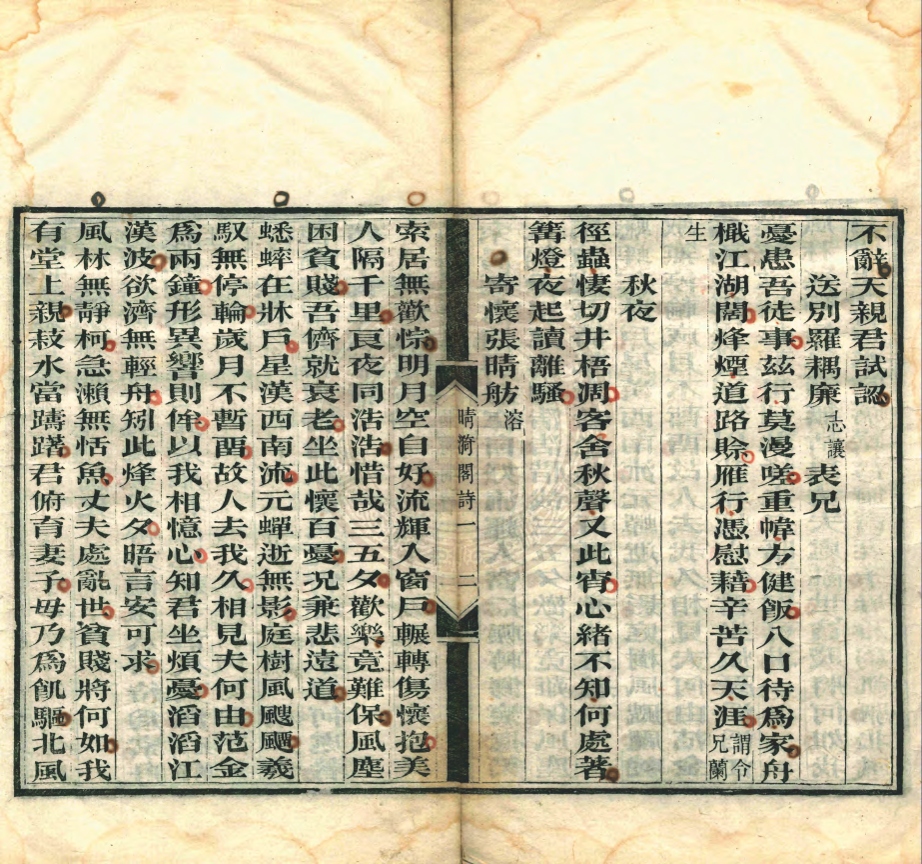 不辭天親君試認
送別羅耦廉志讓表兄
憂患吾徒事茲行莫漫嗟重幃方健飯八口待爲家舟
檝江湖闊烽煙道路賒雁行憑慰藉辛苦久天涯謂令兄蘭
生
秋夜
徑蟲悽切井梧凋客舍秋聲又此宵心緒不知何處著
篝燈夜起讀離騷
寄懷張晴舫溶
晴漪閣詩一 二
索居無歡悰明月空自好流輝入窗戶輾轉傷懷抱美
人隔千里良夜同浩浩惜哉三五夕歡樂竟難保風塵
困貧賤吾儕就衰老坐此懷百憂況兼悲遠道
蟋蟀在牀戶星漢西南流元蟬逝無影庭樹風颼颼羲
馭無停輪歲月不暫畱故人去我久相見夫何由范金
爲兩鐘形異響則侔以我相憶心知君坐煩憂滔滔江
漢波欲濟無輕舟矧此烽火夕晤言安可求
風林無靜柯急瀨無恬魚丈夫處亂世貧賤將何如我
有堂上親菽水當躊躇君俯育妻子毋乃爲飢驅北風